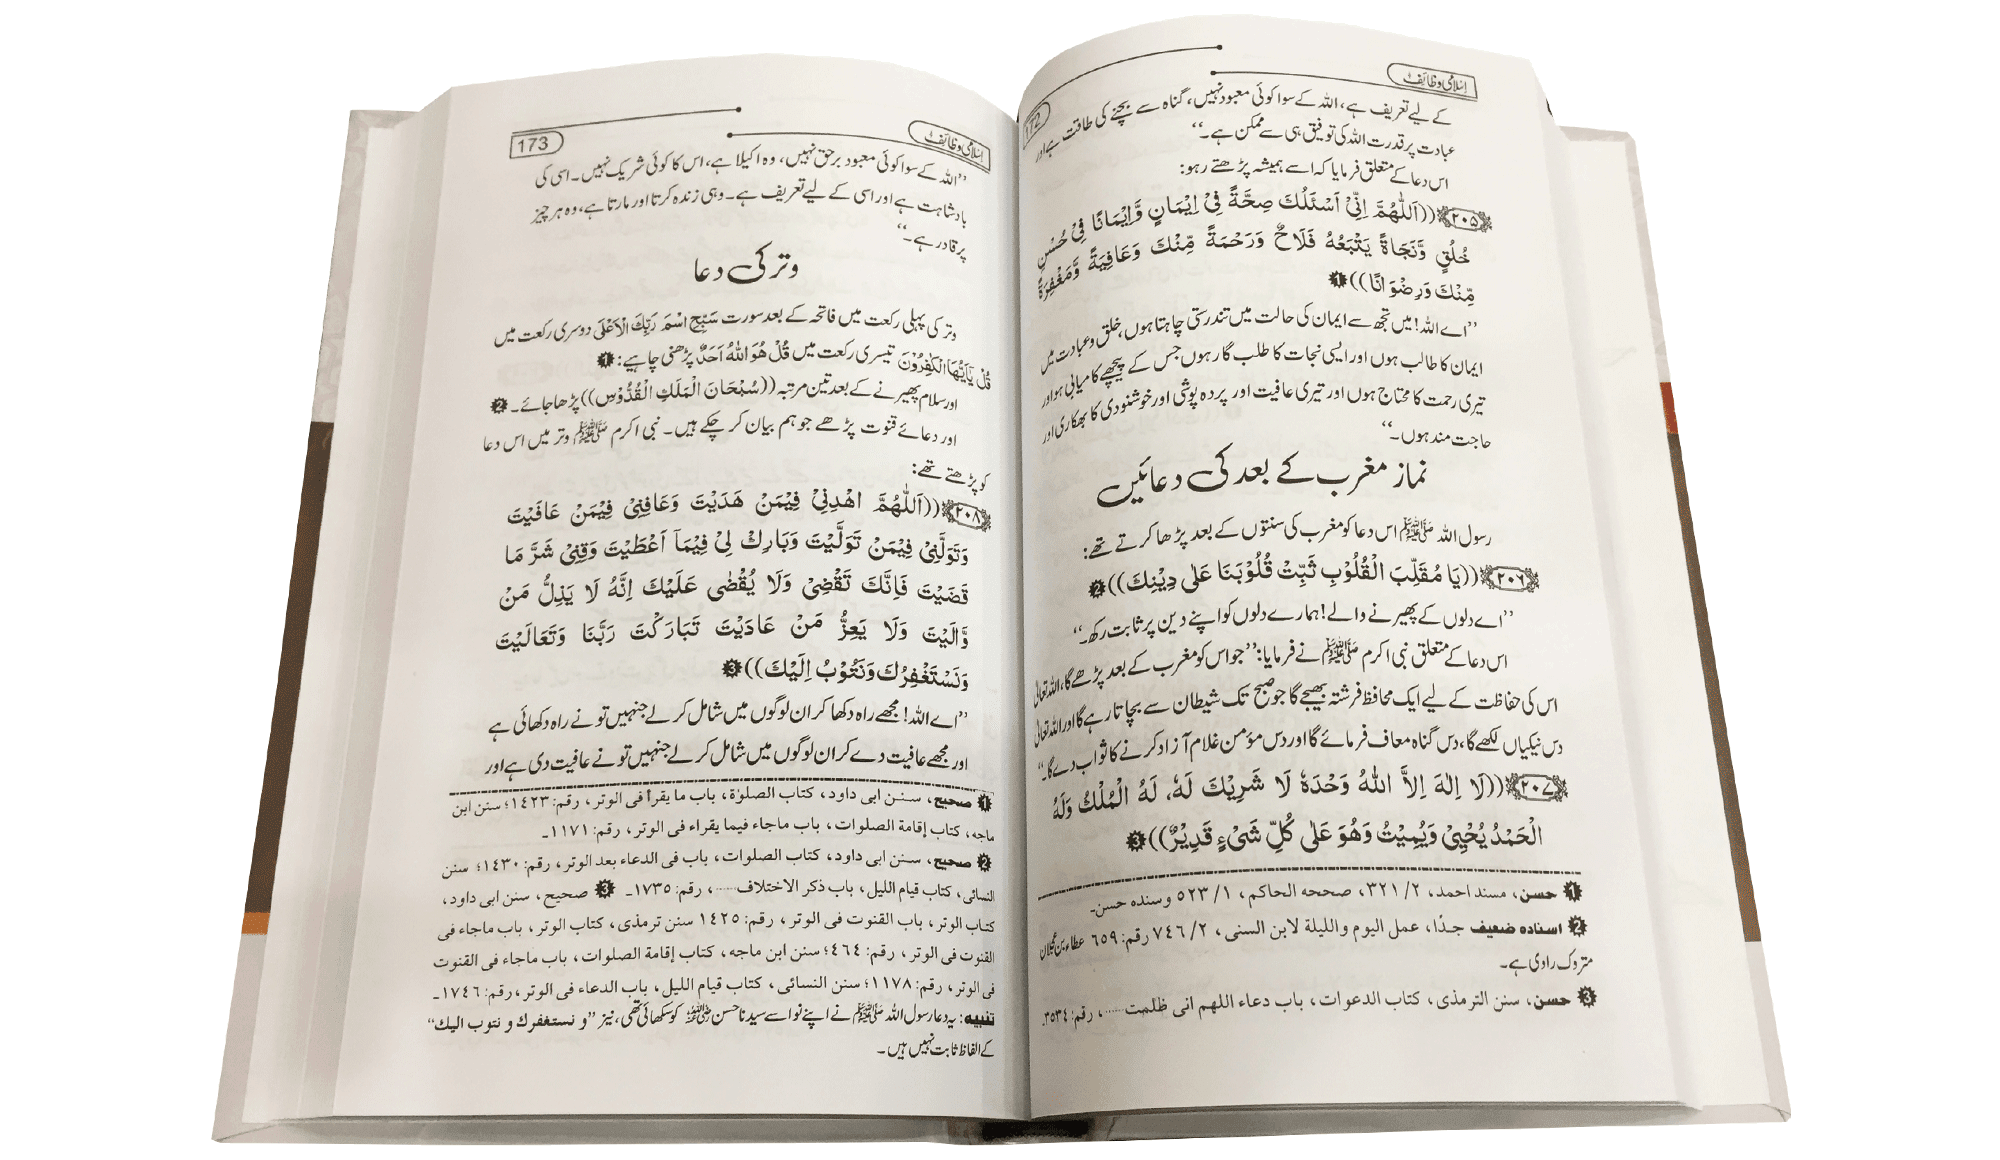 اسلامی وظائف
172
کے لیے تعریف ہے، اللہ کے سوا کوئی معبود نہیں، گناہ سے بچنے کی طاقت ہے اور
عبادت پر قدرت اللہ کی توفیق ہی سے ممکن ہے۔‘‘
اس دعا کے متعلق فرمایا کہ اسے ہمیشہ پڑھتے رہو:
﴿۲۰۵﴾ ((اَللّٰهُمَّ اِنِّیْ اَسْئَلُكَ صِحَّةً فِیْ اِیْمَانٍ وَّاِیْمَانًا فِیْ حُسْنِ
خُلُقٍ وَّنَجَاةً یَتْبَعُهُ فَلَاحٌ وَرَحْمَةً مِّنْكَ وَعَافِیَةً وَّمَغْفِرَةً
مِّنْكَ وَرِضْوَانًا)) ❶
’’اے اللہ! میں تجھ سے ایمان کی حالت میں تندرستی چاہتا ہوں، خلق و عبادت میں
ایمان کا طالب ہوں اور ایسی نجات کا طلب گار ہوں جس کے پیچھے کامیابی ہو اور
تیری رحمت کا محتاج ہوں اور تیری عافیت اور پردہ پوشی اور خوشنودی کا بھکاری اور
حاجت مند ہوں۔‘‘
نماز مغرب کے بعد کی دعائیں
رسول اللہ ﷺ اس دعا کو مغرب کی سنتوں کے بعد پڑھا کرتے تھے:
﴿۲۰۶﴾ ((یَا مُقَلِّبَ الْقُلُوْبِ ثَبِّتْ قُلُوْبَنَا عَلٰی دِیْنِكَ)) ❷
’’اے دلوں کے پھیرنے والے! ہمارے دلوں کو اپنے دین پر ثابت رکھ۔‘‘
اس دعا کے متعلق نبی اکرم ﷺ نے فرمایا: ’’جو اس کو مغرب کے بعد پڑھے گا، اللہ تعالیٰ
اس کی حفاظت کے لیے ایک محافظ فرشتہ بھیجے گا جو صبح تک شیطان سے بچاتا رہے گا اور اللہ تعالیٰ
دس نیکیاں لکھے گا، دس گناہ معاف فرمائے گا اور دس مؤمن غلام آزاد کرنے کا ثواب دے گا۔‘‘
﴿۲۰۷﴾ ((لَا اِلٰهَ اِلاَّ اللّٰهُ وَحْدَهٗ لَا شَرِیْكَ لَهٗ، لَهُ الْمُلْكُ وَلَهُ
الْحَمْدُ یُحْیِیْ وَیُمِیْتُ وَهُوَ عَلٰی كُلِّ شَیْءٍ قَدِیْرٌ)) ❸
❶ حسن، مسند احمد، ۲/ ۳۲۱، صححه الحاكم، ۱/ ۵۲۳ وسنده حسن۔
❷ اسناده ضعیف جدًا، عمل الیوم واللیلة لابن السنی، ۲/ ۷۴۶ رقم: ۶۵۹ عطاء بن عجلان
متروک راوی ہے۔
❸ حسن، سنن الترمذی، كتاب الدعوات، باب دعاء اللهم انی ظلمت......، رقم: ۳۵۳۴۔
اسلامی وظائف
173
’’اللہ کے سوا کوئی معبود برحق نہیں، وہ اکیلا ہے، اس کا کوئی شریک نہیں۔ اسی کی
بادشاہت ہے اور اسی کے لیے تعریف ہے۔ وہی زندہ کرتا اور مارتا ہے، وہ ہر چیز
پر قادر ہے۔‘‘
وتر کی دعا
وتر کی پہلی رکعت میں فاتحہ کے بعد سورت سَبِّحِ اسْمَ رَبِّكَ الْاَعْلٰی دوسری رکعت میں
قُلْ یٰاَیُّهَا الْكٰفِرُوْنَ تیسری رکعت میں قُلْ هُوَ اللّٰهُ اَحَدٌ پڑھنی چاہیے: ❶
اور سلام پھیرنے کے بعد تین مرتبہ ((سُبْحَانَ الْمَلِكِ الْقُدُّوْسِ)) پڑھا جائے۔ ❷
اور دعائے قنوت پڑھے جو ہم بیان کر چکے ہیں۔ نبی اکرم ﷺ وتر میں اس دعا
کو پڑھتے تھے:
﴿۲۰۸﴾ ((اَللّٰهُمَّ اهْدِنِیْ فِیْمَنْ هَدَیْتَ وَعَافِنِیْ فِیْمَنْ عَافَیْتَ
وَتَوَلَّنِیْ فِیْمَنْ تَوَلَّیْتَ وَبَارِكْ لِیْ فِیْمَآ اَعْطَیْتَ وَقِنِیْ شَرَّ مَا
قَضَیْتَ فَاِنَّكَ تَقْضِیْ وَلَا یُقْضٰی عَلَیْكَ اِنَّهُ لَا یَذِلُّ مَنْ
وَّالَیْتَ وَلَا یَعِزُّ مَنْ عَادَیْتَ تَبَارَكْتَ رَبَّنَا وَتَعَالَیْتَ
وَنَسْتَغْفِرُكَ وَنَتُوْبُ اِلَیْكَ)) ❸
’’اے اللہ! مجھے راہ دکھا کر ان لوگوں میں شامل کر لے جنہیں تو نے راہ دکھائی ہے
اور مجھے عافیت دے کر ان لوگوں میں شامل کر لے جنہیں تو نے عافیت دی ہے اور
❶ صحیح، سنن ابی داود، كتاب الصلوٰة، باب ما یقرأ فی الوتر، رقم: ۱۴۲۳؛ سنن ابن
ماجه، كتاب إقامة الصلوات، باب ماجاء فیما یقراء فی الوتر، رقم: ۱۱۷۱۔
❷ صحیح، سنن ابی داود، كتاب الصلوات، باب فی الدعاء بعد الوتر، رقم: ۱۴۳۰؛ سنن
النسائی، كتاب قیام اللیل، باب ذكر الاختلاف......، رقم: ۱۷۳۵۔ ❸ صحیح، سنن ابی داود،
كتاب الوتر، باب القنوت فی الوتر، رقم: ۱۴۲۵ سنن ترمذی، كتاب الوتر، باب ماجاء فی
القنوت فی الوتر، رقم: ۴۶۴؛ سنن ابن ماجه، كتاب إقامة الصلوات، باب ماجاء فی القنوت
فی الوتر، رقم: ۱۱۷۸؛ سنن النسائی، كتاب قیام اللیل، باب الدعاء فی الوتر، رقم: ۱۷۴۶۔
تنبیه: یہ دعا رسول اللہ ﷺ نے اپنے نواسے سیدنا حسن رضی اللہ عنہ کو سکھائی تھی، نیز ’’و نستغفرك و نتوب الیك‘‘
کے الفاظ ثابت نہیں ہیں۔